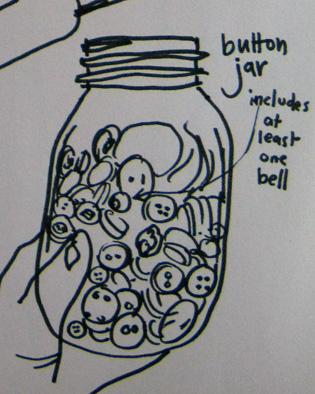 button
jar
includes
at
least
one
bell